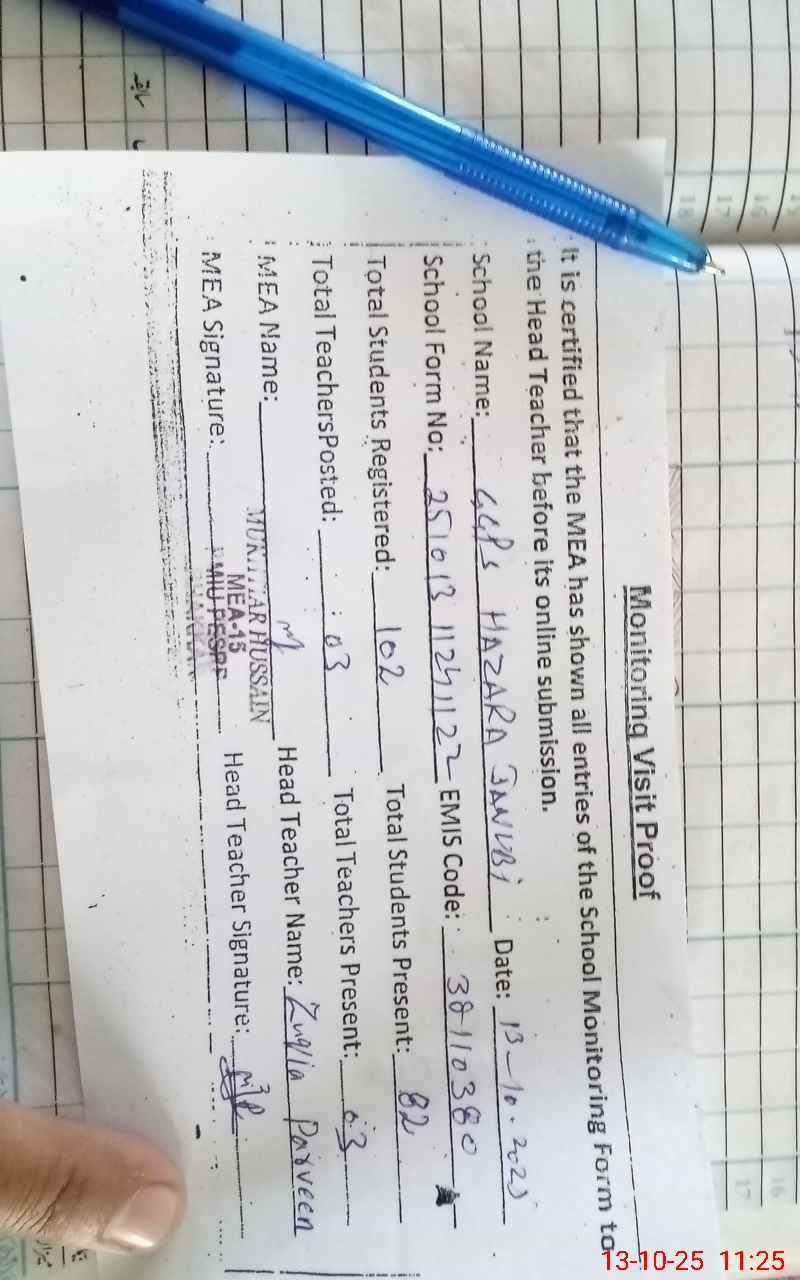 Monitoring Visit Proof
It is certified that the MEA has shown all entries of the School Monitoring Form to
the Head Teacher before its online submission.
School Name: GGPS HAZARA JANUBi Date: 13-10-2025
School Form No: 25101311241122 EMIS Code: 38110380
Total Students Registered: 102 Total Students Present: 82
Total TeachersPosted: 03 Total Teachers Present: 03
MEA Name: HUSSAIN Head Teacher Name: Parveen
MEA-15
MEA Signature: PMIU PESRP Head Teacher Signature:
18
17
16
17
16
13-10-25 11:25